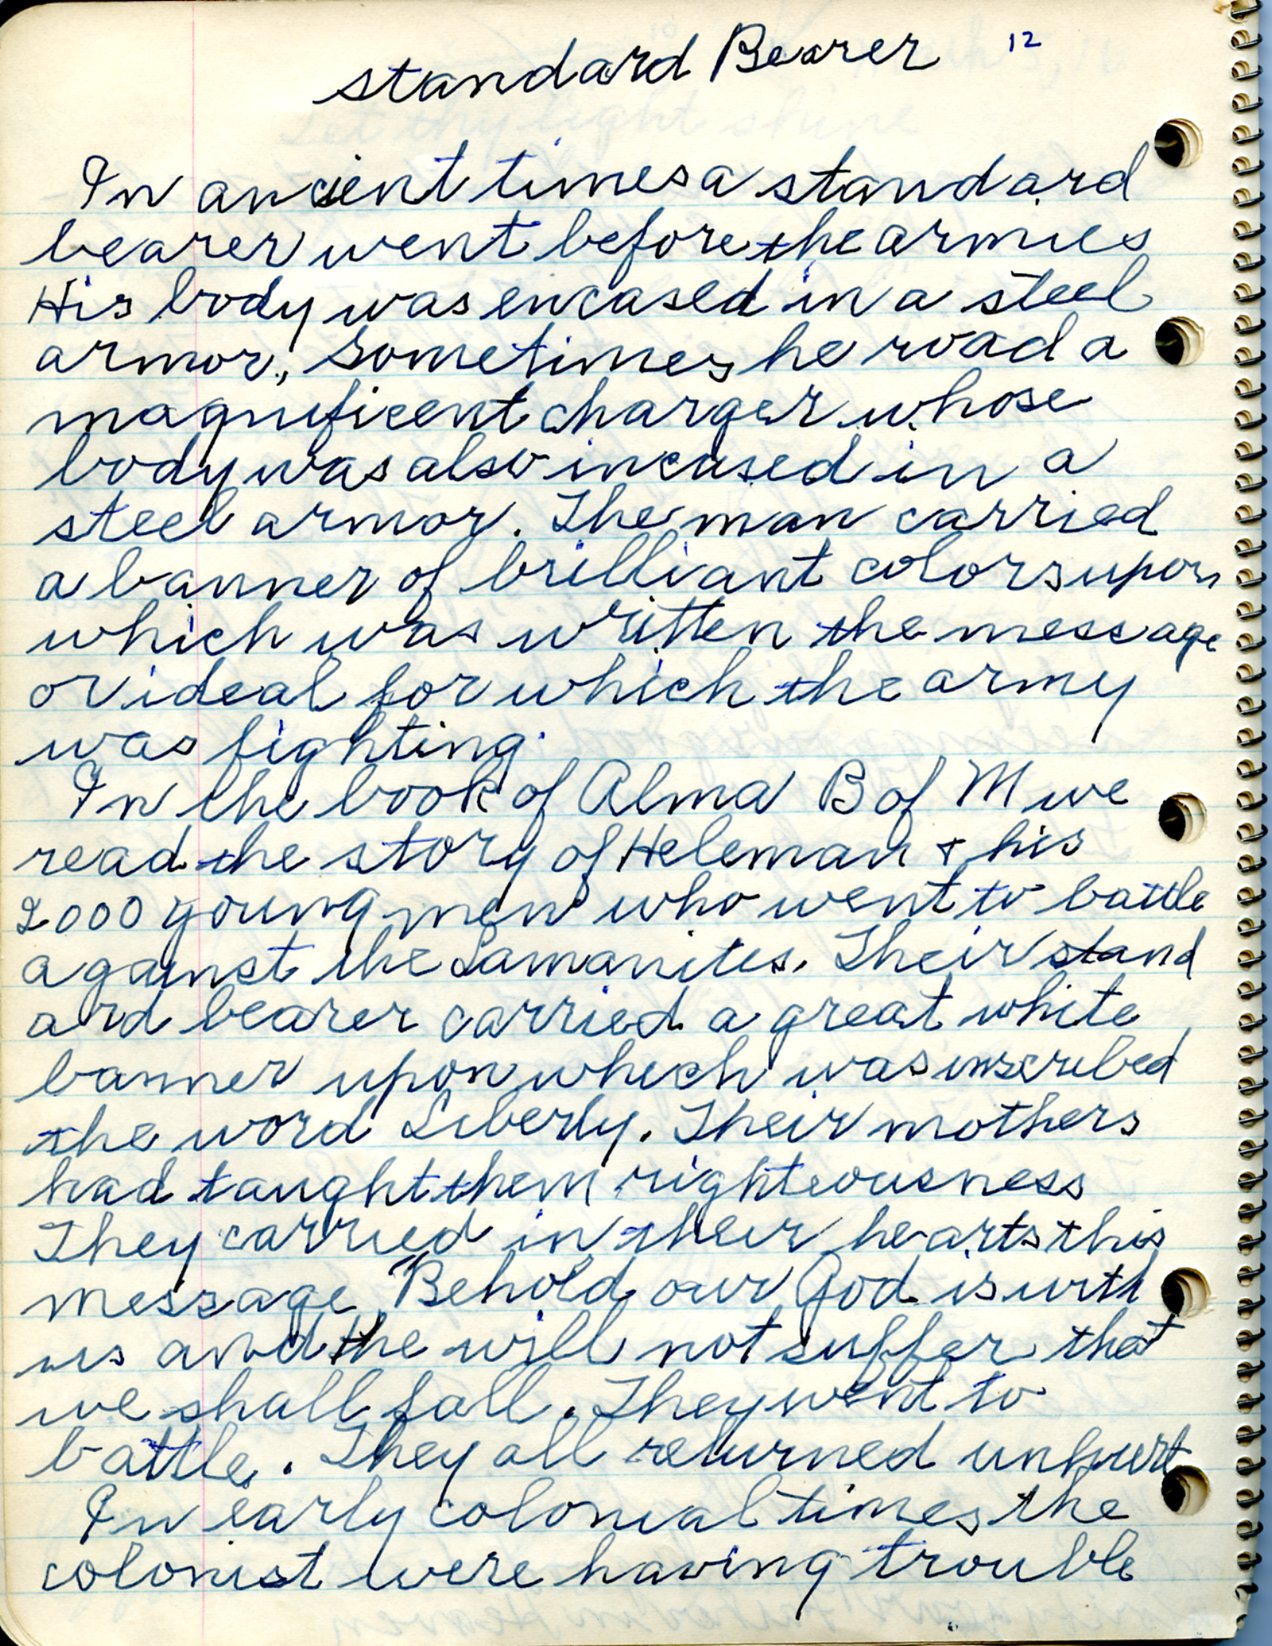 standard Bearer 12
In ancient times a standard
bearer went before the armies
His body was encased in a steel
armor, sometimes he road a
magnificent charger whose
body was also incased in a
steel armor. The man carried
a banner of brilliant colors upon
which was written the message
or ideal for which the army
was fighting.
In the book of Alma B of M we
read the story of Heleman & his
2000 young men who went to battle
against the Lamanites. Their stand
ard bearer carried a great white
banner upon which was inscribed
the word Liberty. Their mothers
had taught them righteousness
They carried in their hearts this
message "Behold our God is with
us and he will not suffer that
we shall fall. They went to
battle. They all returned unhurt
In early colonial times the
colonist were having trouble